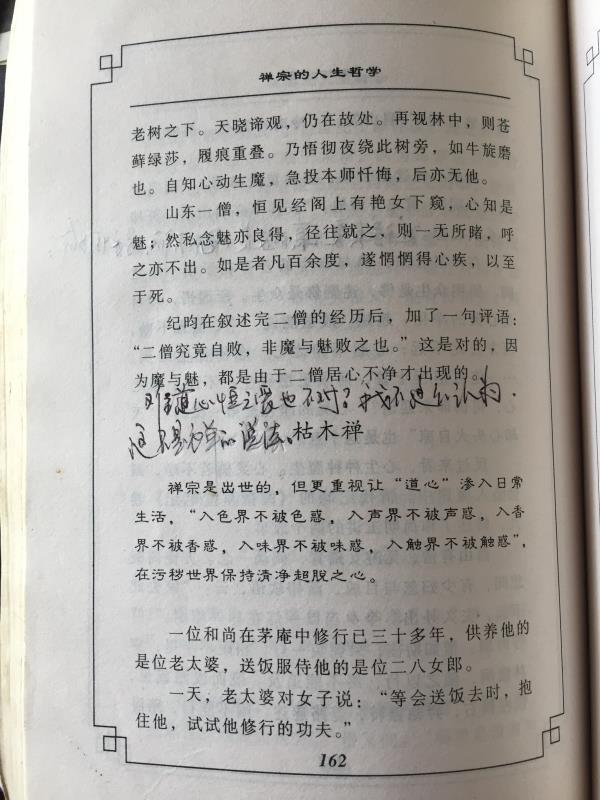 禅宗的人生哲学
老树之下。天晓谛观，仍在故处。再视林中，则苍
藓绿莎，履痕重叠。乃悟彻夜绕此树旁，如牛旋磨
也。自知心动生魔，急投本师忏悔，后亦无他。
山东一僧，恒见经阁上有艳女下窥，心知是
魅；然私念魅亦良得，径往就之，则一无所睹，呼
之亦不出。如是者凡百余度，遂惘惘得心疾，以至
于死。
纪昀在叙述完二僧的经历后，加了一句评语：
“二僧究竟自败，非魔与魅败之也。”这是对的，因
为魔与魅，都是由于二僧居心不净才出现的。
难道心
也不对？我不这么认为.
这不是禅的说法。
枯木禅
禅宗是出世的，但更重视让“道心”渗入日常
生活，“入色界不被色惑，入声界不被声惑，入香
界不被香惑，入味界不被味惑，入触界不被触惑”，
在污秽世界保持清净超脱之心。
一位和尚在茅庵中修行已三十多年，供养他的
是位老太婆，送饭服侍他的是位二八女郎。
一天，老太婆对女子说：“等会送饭去时，抱
住他，试试他修行的功夫。”
162